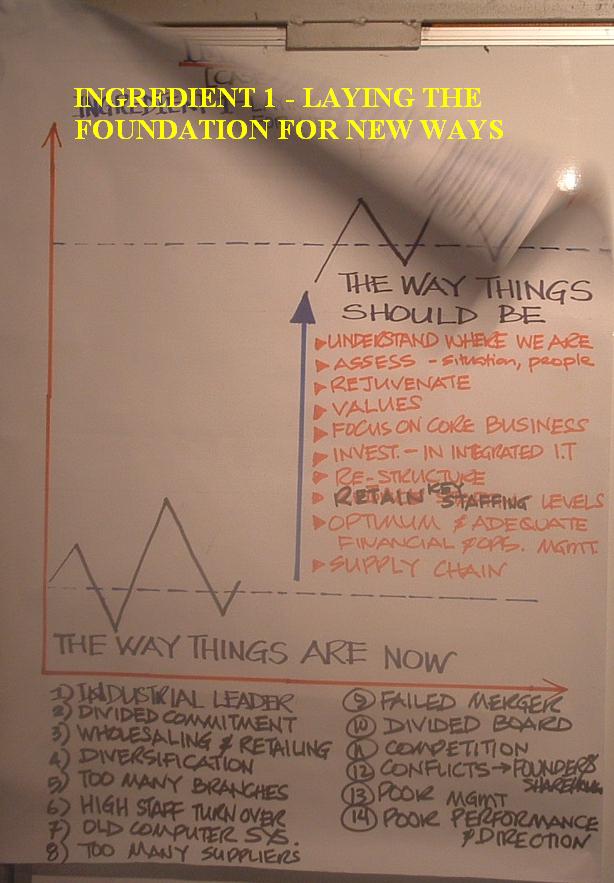 INGREDIENT 1 - LAYING THE
FOUNDATION FOR NEW WAYS
INGREDIENT 1
THE WAY THINGS
SHOULD BE
UNDERSTAND WHERE WE ARE
ASSESS - situation, people
REJUVENATE
VALUES
FOCUS ON CORE BUSINESS
INVEST. - IN INTEGRATED I.T
RE-STRUCTURE
RETAIN KEY STAFFING LEVELS
OPTIMUM & ADEQUATE
FINANCIAL & OPS. MGMT.
SUPPLY CHAIN
THE WAY THINGS ARE NOW
1) INDUSTRIAL LEADER
2) DIVIDED COMMITMENT
3) WHOLESALING & RETAILING
4) DIVERSIFICATION
5) TOO MANY BRANCHES
6) HIGH STAFF TURN OVER
7) OLD COMPUTER SYS.
8) TOO MANY SUPPLIERS
9 FAILED MERGER
10 DIVIDED BOARD
11 COMPETITION
12 CONFLICTS → FOUNDERS
13 POOR MGMT
14 POOR PERFORMANCE
& DIRECTION